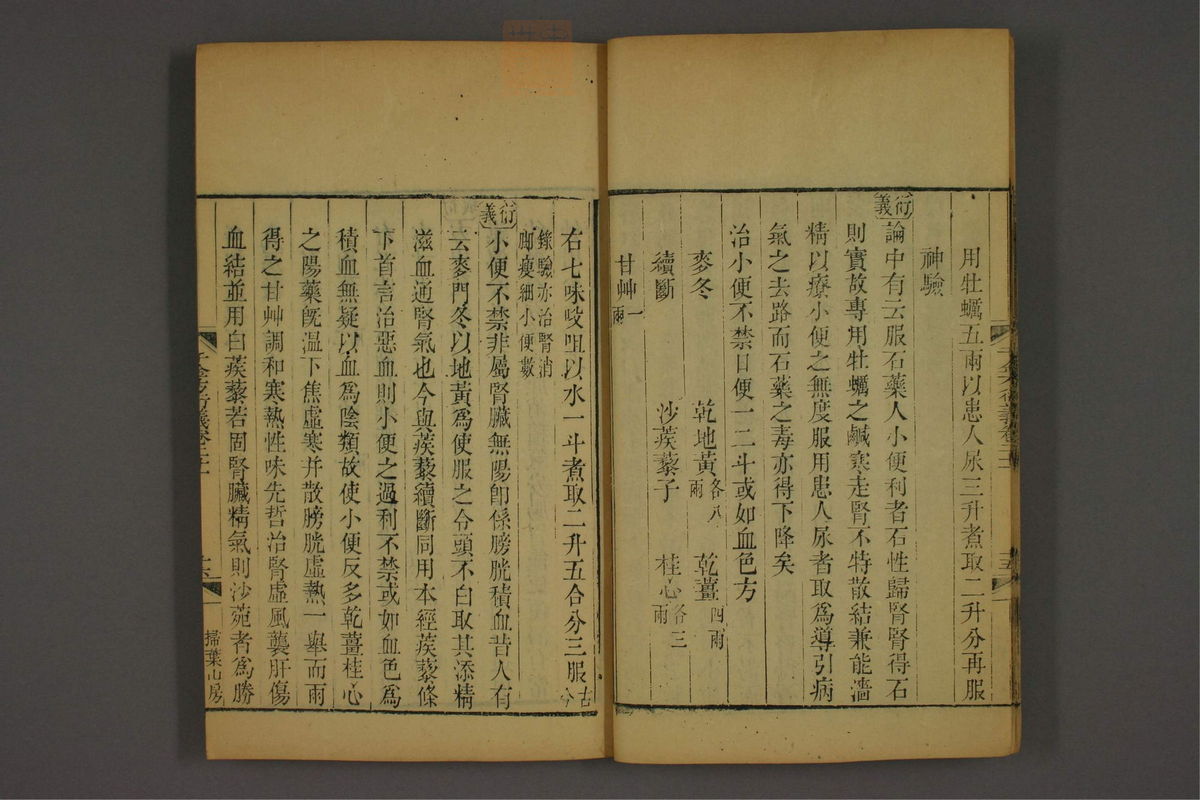 用牡蠣五兩以患人尿三升煮取二升分再服
神驗
衍義
論中有云服石藥人小便利者石性歸腎腎得石
則實故專用牡蠣之鹹寒走腎不特散結兼能濇
精以療小便之無度服用患人尿者取爲導引病
氣之去路而石藥之毒亦得下降矣
治小便不禁日便一二斗或如血色方
麥冬 乾地黃各八兩 乾薑四兩
續斷 沙蒺藜子 桂心各三兩
甘艸一兩
右七味㕮咀以水一斗煮取二升五合分三服古今
錄驗亦治腎消
脚瘦細小便數
衍義
小便不禁非屬腎臟無陽卽係膀胱積血昔人有
云麥門冬以地黃爲使服之令頭不白取其添精
滋血通腎氣也今與蒺藜續斷同用本經蒺藜條
下首言治惡血則小便之過利不禁或如血色爲
積血無疑以血爲陰類故使小便反多乾薑桂心
之陽藥旣溫下焦虛寒并散膀胱虛熱一舉而兩
得之甘艸調和寒熱性味先哲治腎虛風襲肝傷
血結並用白蒺藜若固腎臟精氣則沙苑者爲勝
掃葉山房